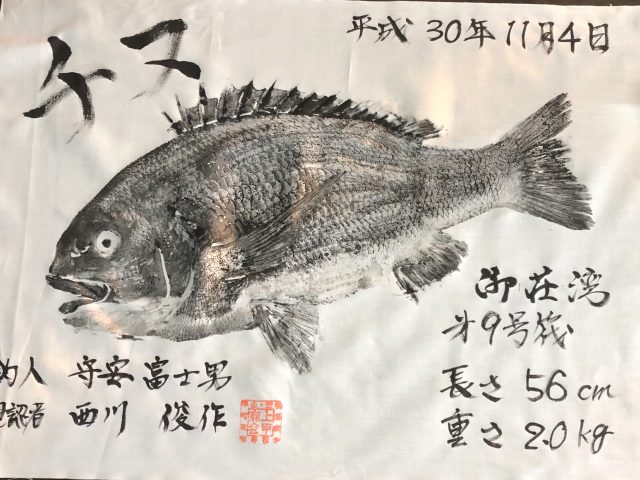 チヌ
平成 30年 11月4日
御荘湾
9号筏
長さ 56 cm
重さ 2.0 kg
人 守安 富士男
認者 西川 俊作